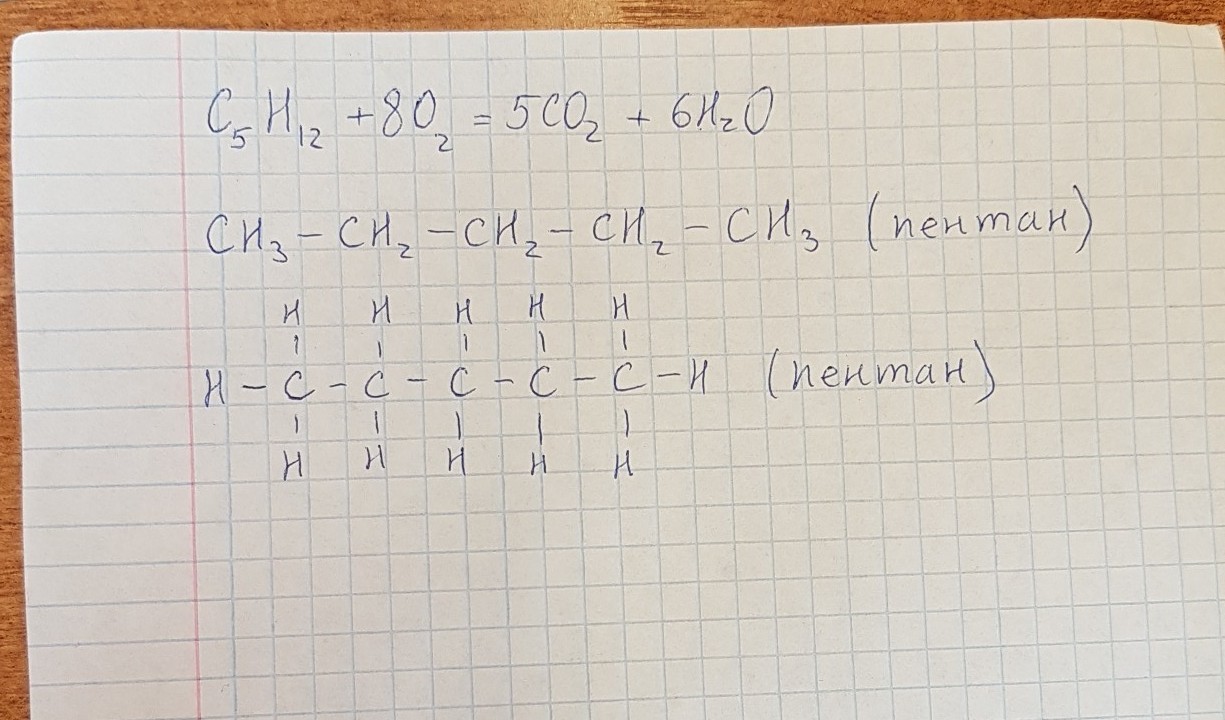 C₅H₁₂ + 8O₂ = 5CO₂ + 6H₂O
CH₃ – CH₂ – CH₂ – CH₂ – CH₃ (пентан)
H H H H H
H – C – C – C – C – C – H (пентан)
H H H H H